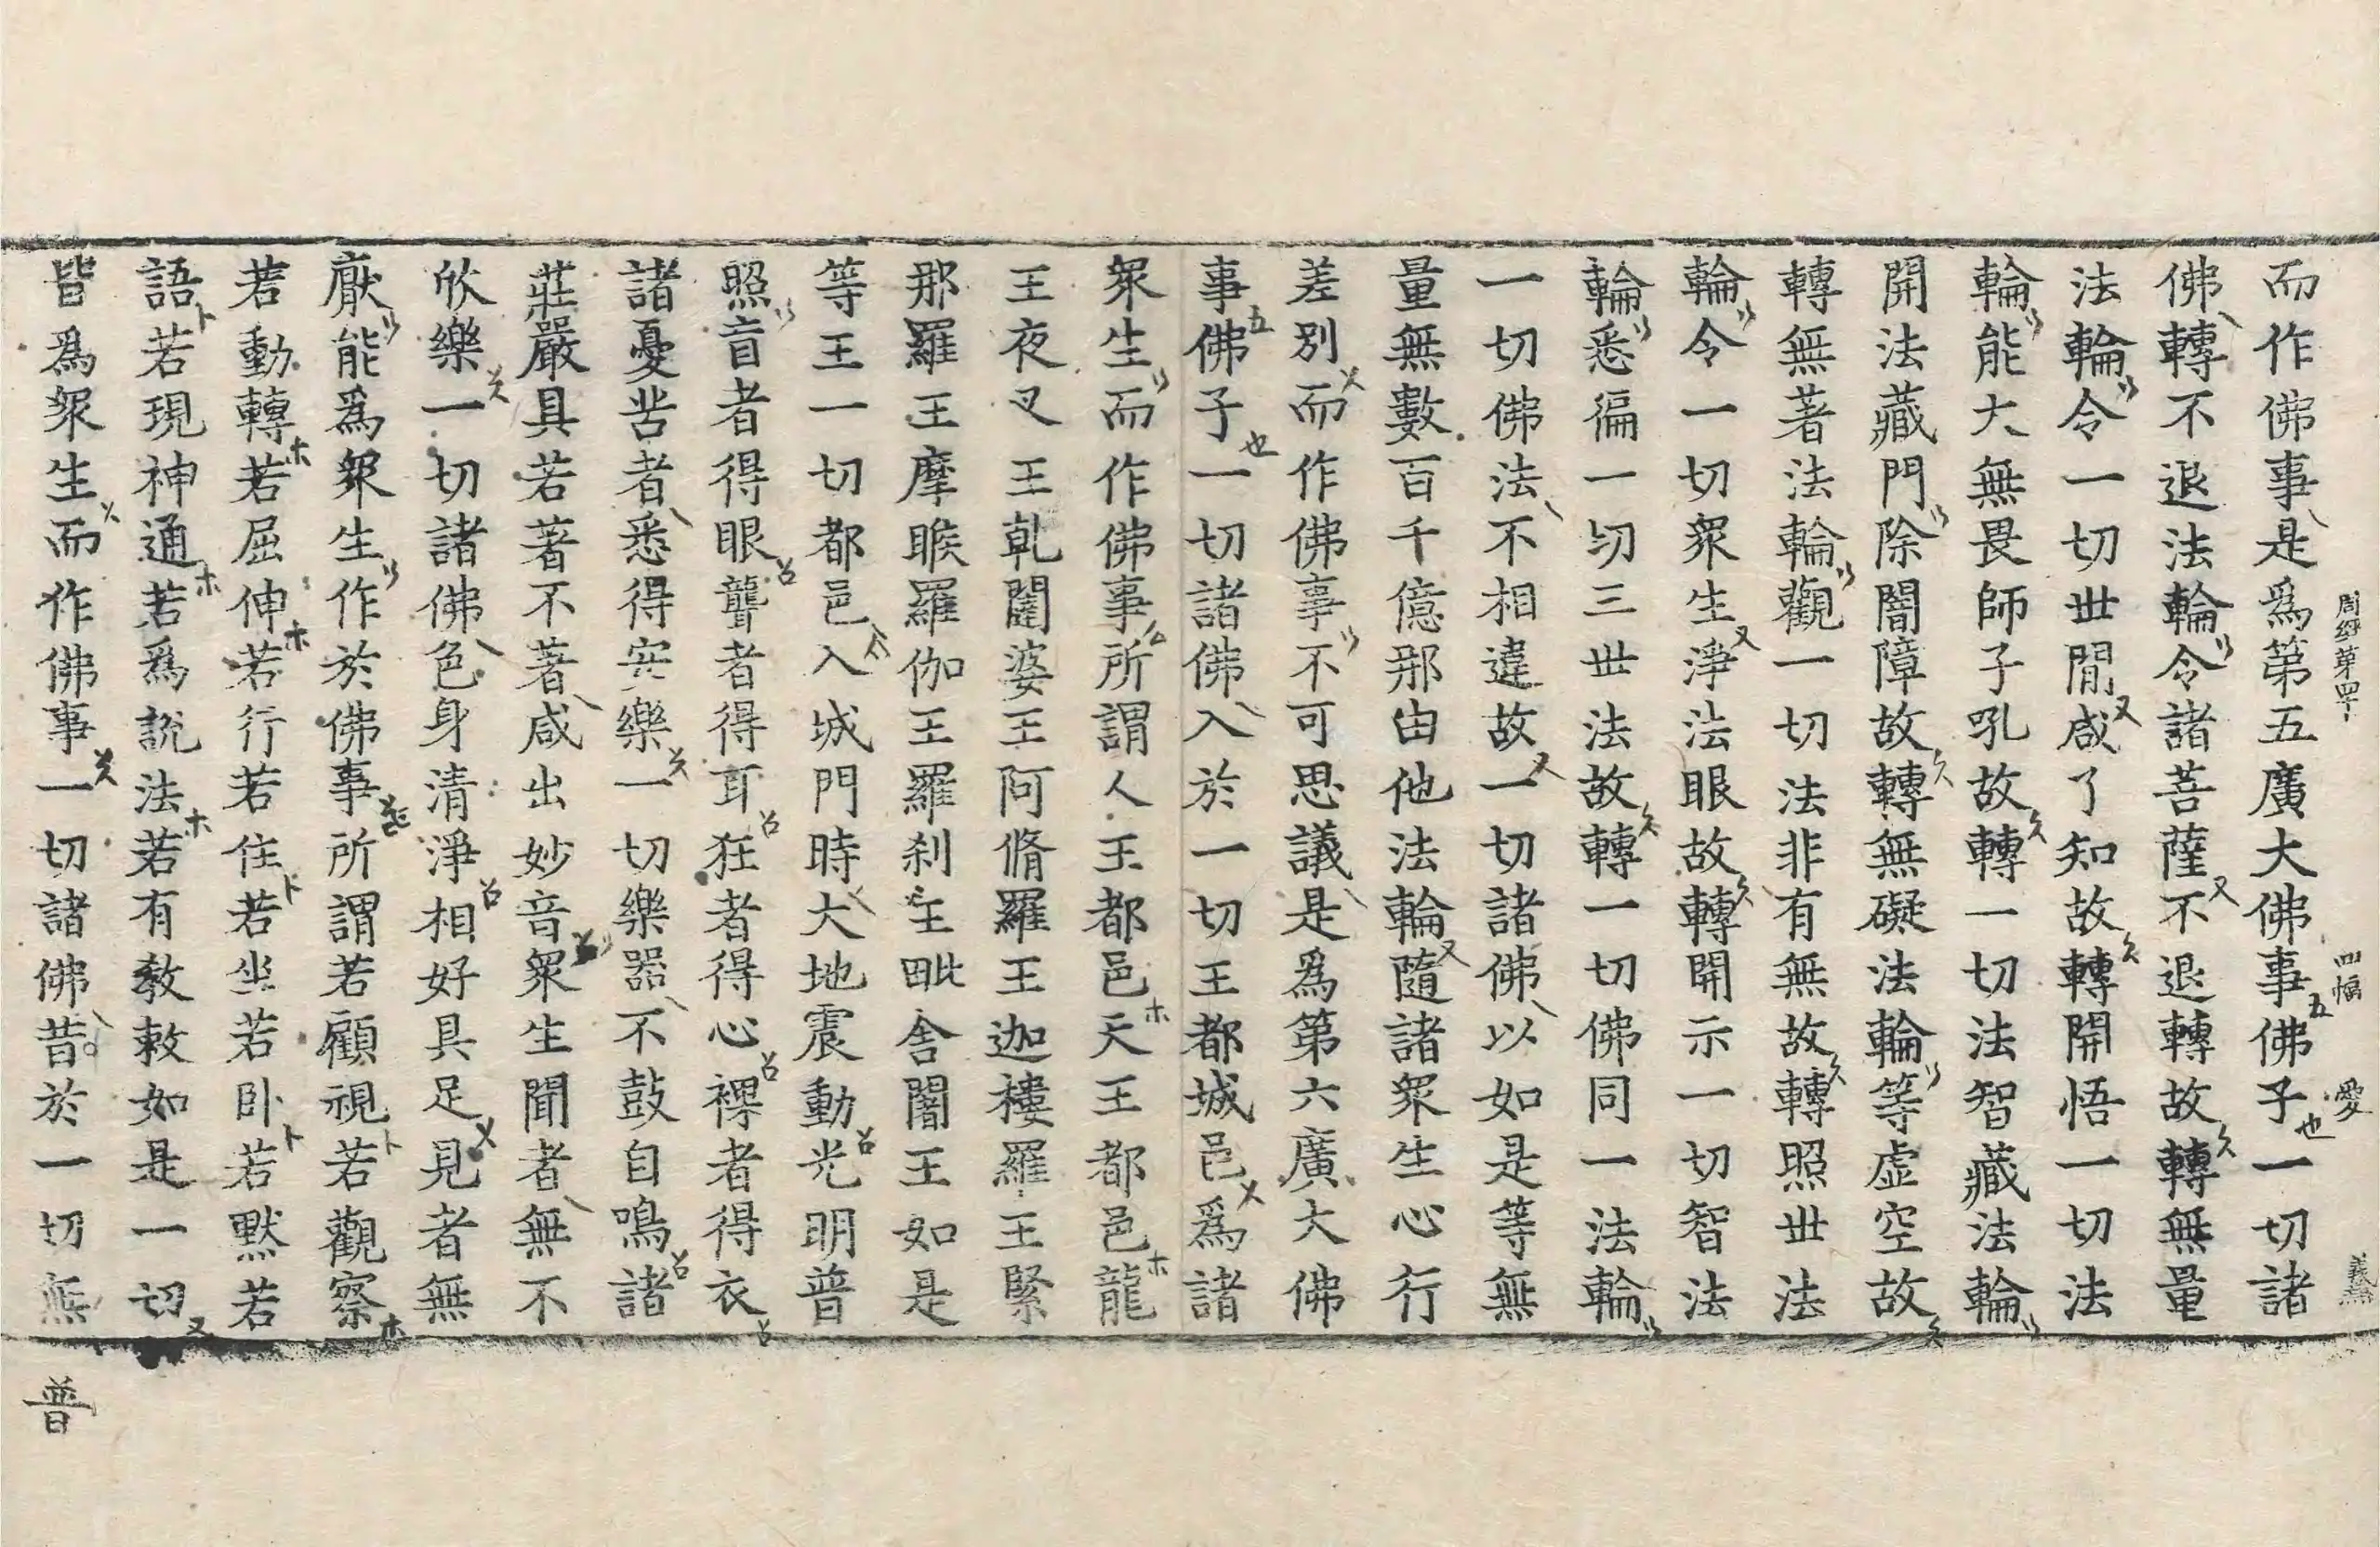 周経第四十 四幅 愛
而作佛事是爲第五廣大佛事佛子一切諸
佛轉不退法輪令諸菩薩不退轉故轉無量
法輪令一切世閒咸了知故轉開悟一切法
輪能大無畏師子吼故轉一切法智藏法輪
開法藏門除闇障故轉無礙法輪等虛空故
轉無著法輪觀一切法非有無故轉照世法
輪令一切衆生淨法眼故轉開示一切智法
輪悉徧一切三世法故轉一切佛同一法輪
一切佛法不相違故一切諸佛以如是等無
量無數百千億那由他法輪隨諸衆生心行
差別而作佛事不可思議是爲第六廣大佛
事佛子一切諸佛入於一切王都城邑爲諸
衆生而作佛事所謂人王都邑天王都邑龍
王夜叉王乹闥婆王阿脩羅王迦樓羅王緊
那羅王摩睺羅伽王羅刹王毗舍闍王如是
等王一切都邑入城門時大地震動光明普
照盲者得眼聾者得耳狂者得心裸者得衣
諸憂苦者悉得安樂一切樂器不鼓自鳴諸
莊嚴具若著不著咸出妙音衆生聞者無不
欣樂一切諸佛色身清淨相好具足見者無
厭能爲衆生作於佛事所謂若顧視若觀察
若動轉若屈伸若行若住若坐若臥若默若
語若現神通若爲說法若有教敕如是一切
皆爲衆生而作佛事一切諸佛昔於一切無
普